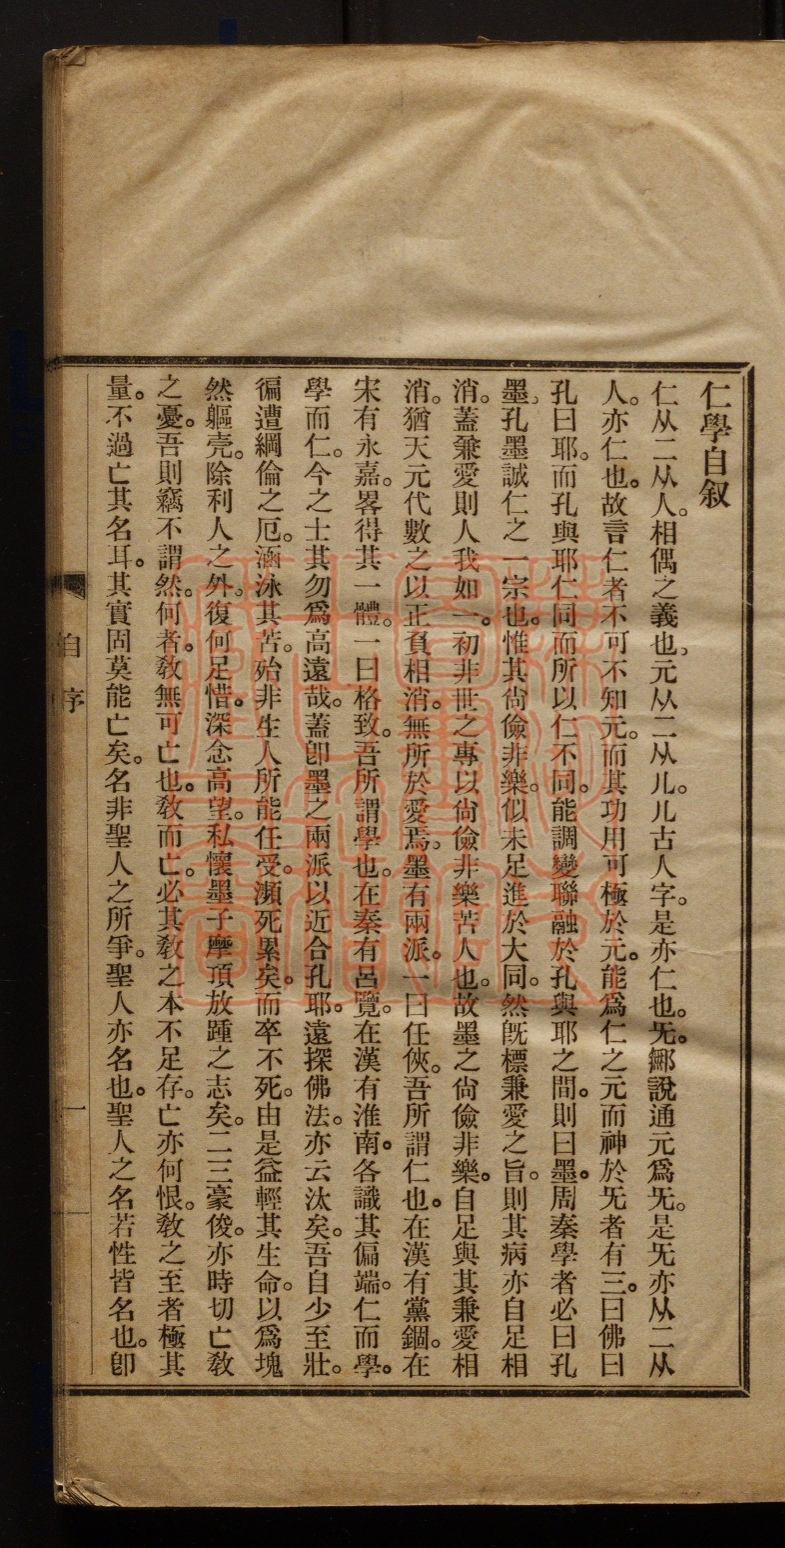 仁學自叙
仁从二从人。相偶之義也。元从二从儿。儿古人字。是亦仁也。旡。鄦說通元爲旡。是旡亦从二从
人。亦仁也。故言仁者不可不知元。而其功用可極於元。能爲仁之元而神於旡者有三。曰佛曰
孔曰耶。而孔與耶仁同而所以仁不同。能調變聯融於孔與耶之間。則曰墨。周秦學者必曰孔
墨。孔墨誠仁之一宗也。惟其尙儉非樂。似未足進於大同。然旣標兼愛之旨。則其病亦自足相
消。蓋兼愛則人我如一。初非世之專以尙儉非樂苦人也。故墨之尙儉非樂。自足與其兼愛相
消。猶天元代數之以正負相消。無所於愛焉。墨有兩派。一曰任俠。吾所謂仁也。在漢有黨錮。在
宋有永嘉。畧得其一體。一曰格致。吾所謂學也。在秦有呂覽。在漢有淮南。各識其偏端。仁而學。
學而仁。今之士其勿爲高遠哉。蓋卽墨之兩派以近合孔耶。遠探佛法。亦云汰矣。吾自少至壯。
徧遭綱倫之厄。涵泳其苦。殆非生人所能任受。瀕死累矣。而卒不死。由是益輕其生命。以爲塊
然軀壳。除利人之外。復何足惜。深念高望。私懷墨子摩頂放踵之志矣。二三豪俊。亦時切亡敎
之憂。吾則竊不謂然。何者。敎無可亡也。敎而亡。必其敎之本不足存。亡亦何恨。敎之至者極其
量。不過亡其名耳。其實固莫能亡矣。名非聖人之所爭。聖人亦名也。聖人之名若性皆名也。卽
自序
一